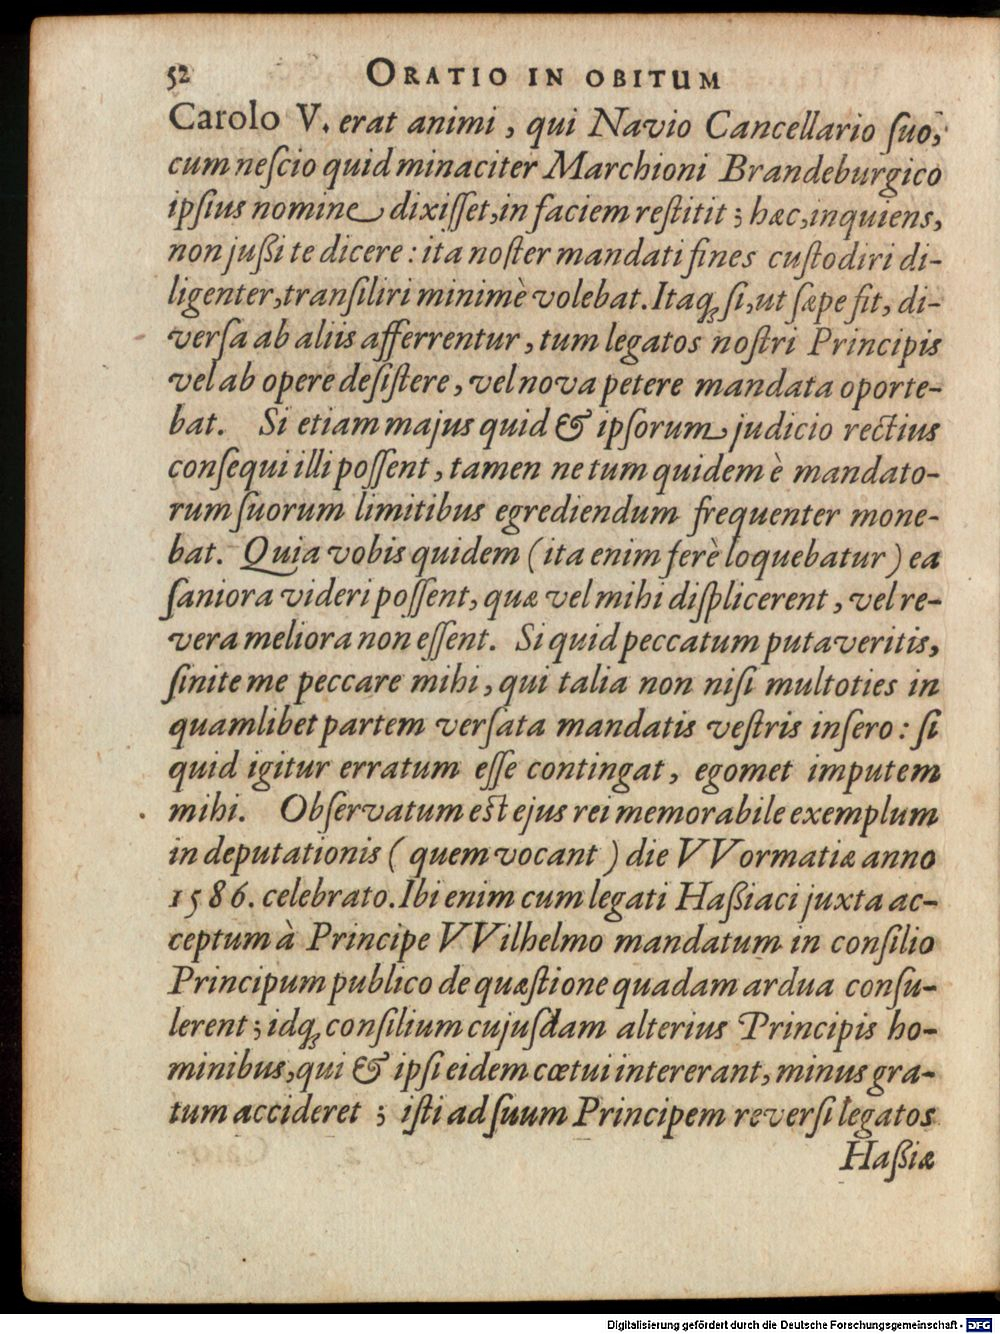 52 ORATIO IN OBITUM
Carolo V. erat animi, qui Navio Cancellario ſuo,
cum neſcio quid minaciter Marchioni Brandeburgico
ipſius nomine dixiſſet, in faciem reſtitit; hæc, inquiens,
non jußi te dicere: ita noſter mandati fines cuſtodiri di-
ligenter, tranſiliri minimè volebat. Itaq; ſi, ut ſæpe fit, di-
verſa ab aliis afferrentur, tum legatos noſtri Principis
vel ab opere deſiſtere, vel nova petere mandata oporte-
bat. Si etiam majus quid & ipſorum judicio rectius
conſequi illi poſſent, tamen ne tum quidem è mandato-
rum ſuorum limitibus egrediendum frequenter mone-
bat. Quia vobis quidem (ita enim ferè loquebatur) ea
ſaniora videri poſſent, quæ vel mihi diſplicerent, vel re-
vera meliora non eſſent. Si quid peccatum putaveritis,
ſinite me peccare mihi, qui talia non niſi multoties in
quamlibet partem verſata mandatis veſtris inſero: ſi
quid igitur erratum eſſe contingat, egomet imputem
mihi. Obſervatum est ejus rei memorabile exemplum
in deputationis (quem vocant) die VVormatiæ anno
1586. celebrato. Ibi enim cum legati Haßiaci juxta ac-
ceptum à Principe VVilhelmo mandatum in conſilio
Principum publico de quæſtione quadam ardua conſu-
lerent; idq; conſilium cujuſdam alterius Principis ho-
minibus, qui & ipſi eidem cœtui intererant, minus gra-
tum accideret; iſti ad ſuum Principem reverſi legatos
Haßiæ
Digitalisierung gefördert durch die Deutsche Forschungsgemeinschaft - DFG